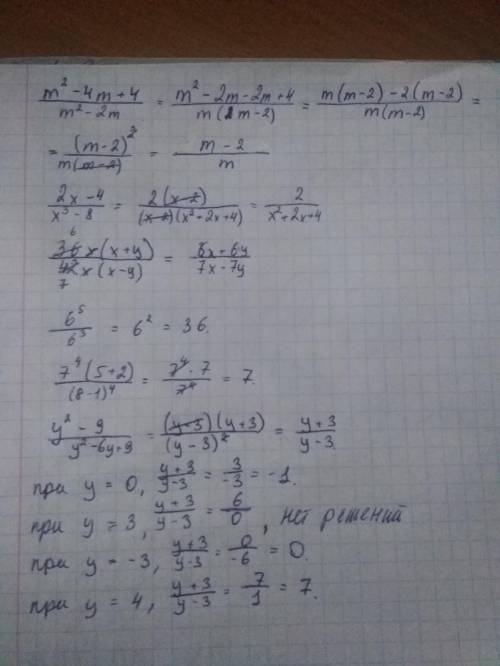 m² - 4m + 4 / m² - 2m = m² - 2m - 2m + 4 / m(2m-2) = m(m-2) - 2(m-2) / m(m-2) =
= (m-2)² / m(m-2) = m - 2 / m
2x - 4 / x³ - 8 = 2(x-2) / (x-2)(x²+2x+4) = 2 / x²+2x+4
6 36x(x+y) / 42x(x-y) 7 = 6x + 6y / 7x - 7y
6⁵ / 6³ = 6² = 36.
7⁴(5+2) / (8-1)⁴ = 7⁴ · 7 / 7⁴ = 7.
y² - 9 / y² - 6y + 9 = (y-3)(y+3) / (y-3)² = y+3 / y-3.
при y = 0, y+3 / y-3 = 3 / -3 = -1.
при y = 3, y+3 / y-3 = 6 / 0, нет решений
при y = -3, y+3 / y-3 = 0 / -6 = 0.
при y = 4, y+3 / y-3 = 7 / 1 = 7.